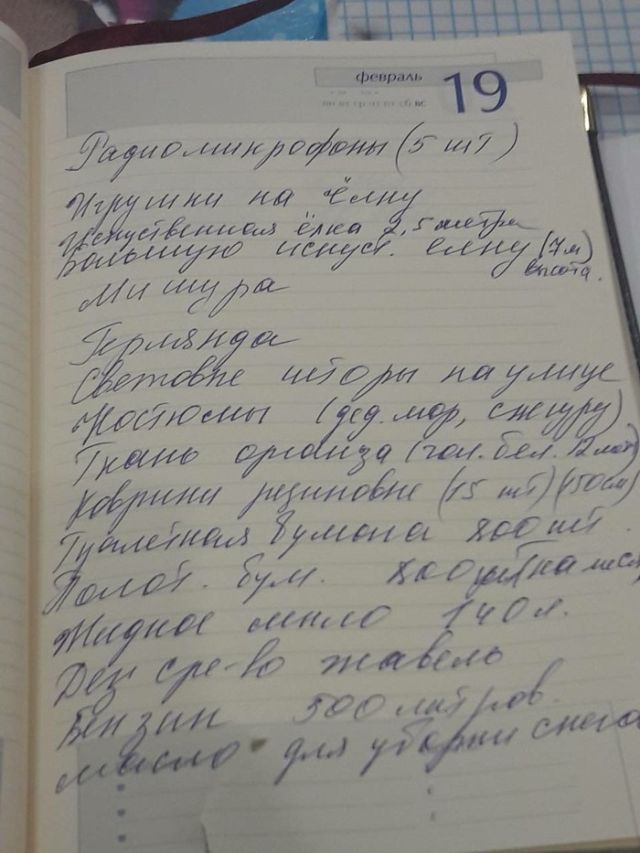 февраль 19
пн вт ср чт пт сб вс
Радиомикрофоны (5 шт)
Игрушки на ёлку
Искуственная ёлка 2,5 метра
Большую искуст. елку (7м)
высота.
Мишура
Герлянда
Световые шторы на улице
Костюмы (дед. мор, снегур)
Ткань органза (гол. бел. 12 мет)
Коврики резиновые (15 шт) (150см)
Туалетная бумага 800 шт.
Полот. бум. 800 шт (на меся
Жидкое мыло 140 л.
Дез ср-во жавель
Бензин 500 литров.
масло для уборки снега